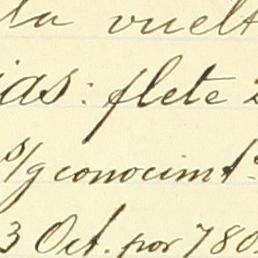 la vuelt
ias: flete 2
s/g conocimt.
3 Oct. por 780